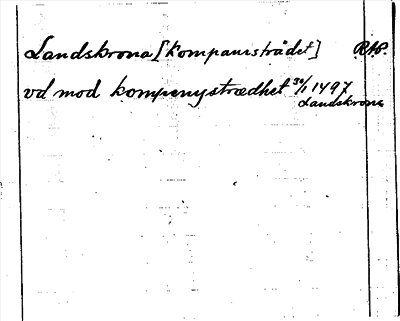 Landskrona [Kompanisträdet] RAP.
vd mod kompenystrædhet 30/1 1497
Landskrona